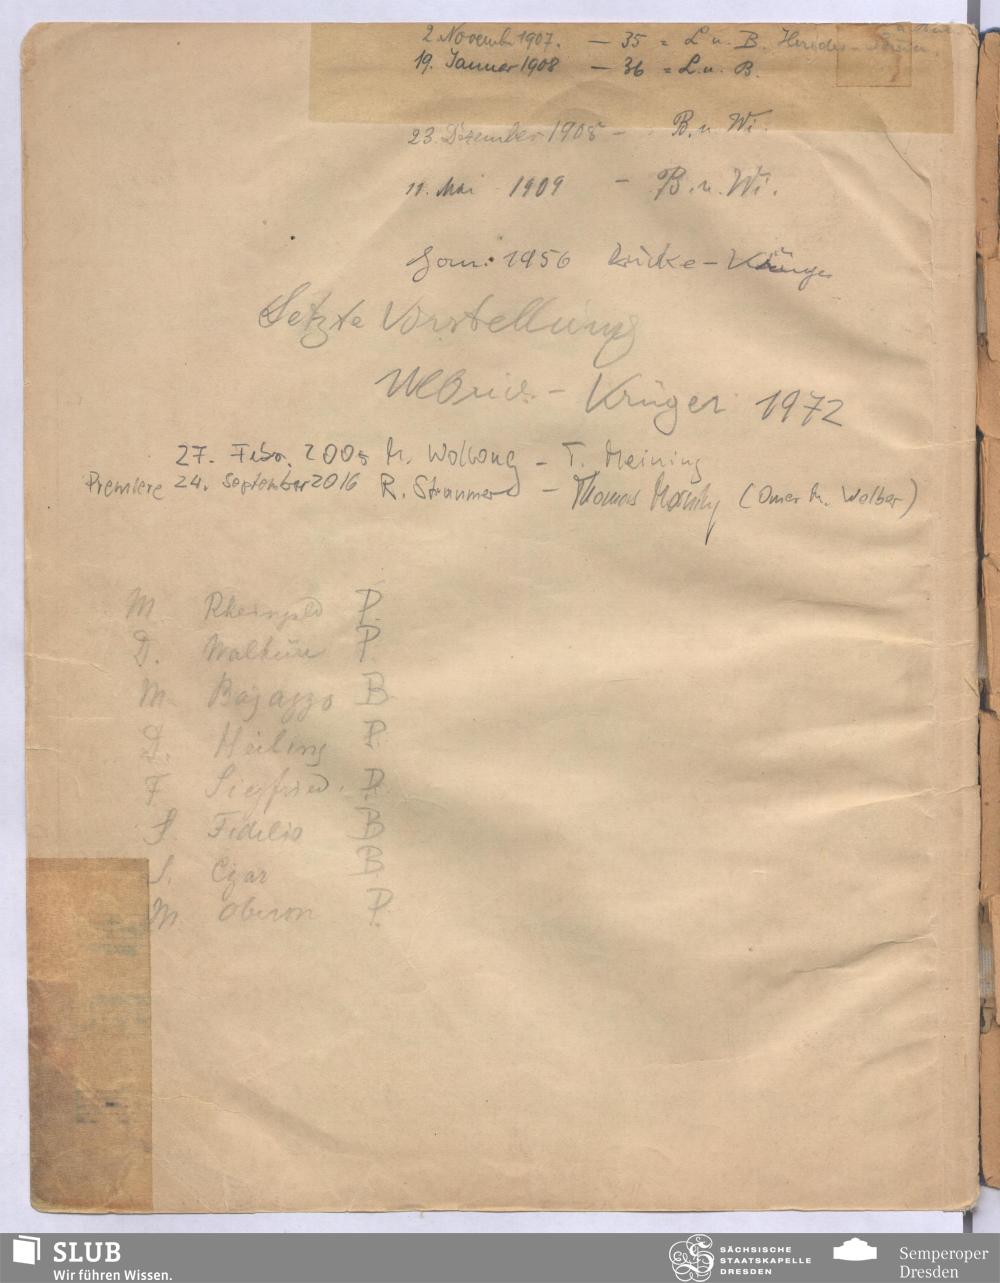 2. Novemb. 1907. — 35 = L. u. B.
19. Januar 1908 — 36 = L. u. B.
23. Dezember 1908 — B. u. Wi.
11. Mai 1909 — B. u. Wi.
1956 - Krüger
Letzte Vorstellung
Ulbrich. - Krüger 1972
27. Febr. 2005 M. Wollong - T. Meining
Premiere 24. September 2016 R. Straumer - Thomas (Omer M. Welber)
M Rheingold P.
D. Walküre P
M. Bajazzo B
D. Heiling P.
F Siegfried. P.
S. Fidelio B
S. Czar B
M Oberon P.
SLUB
Wir führen Wissen.
SÄCHSISCHE
STAATSKAPELLE
DRESDEN
Semperoper
Dresden